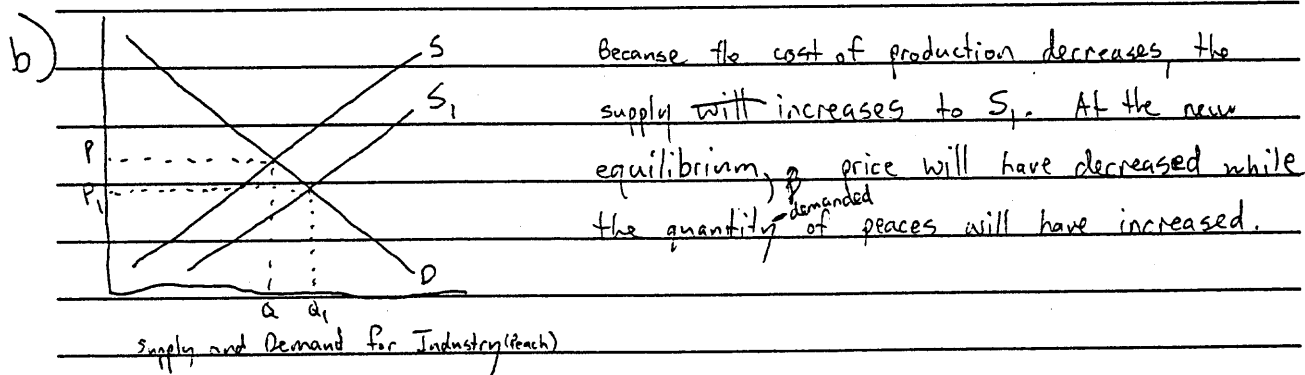 b)
S
S₁
P
P₁
D
Q Q₁
Supply and Demand for Industry (Peach)
Because the cost of production decreases, the
supply will increases to S₁. At the new
equilibrium, price will have decreased while
the quantity demanded of peaces will have increased.